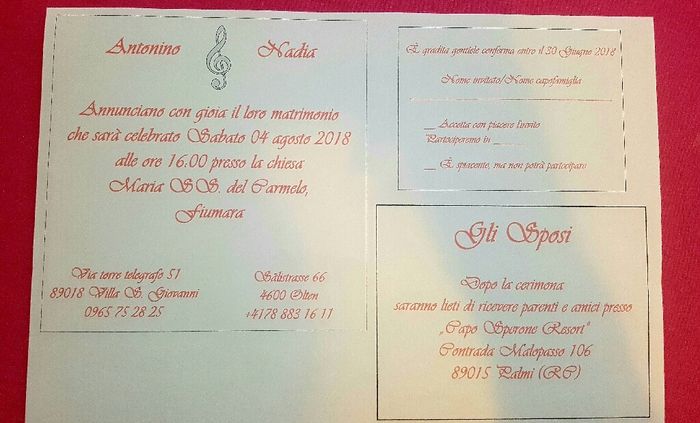 Antonino Nadia
Annunciano con gioia il loro matrimonio
che sarà celebrato Sabato 04 agosto 2018
alle ore 16.00 presso la chiesa
Maria SS. del Carmelo,
Fiumara
Via torre telegrafo 51
89018 Villa S. Giovanni
0965 75 28 25
Sälistrasse 66
4600 Olten
+4178 883 16 11
È gradita gentiele conferma entro il 30 Giugno 2018
Nome invitato/Nome capofamiglia
__ Accetta con piacere l'invito
Parteciperemo in ____
__ È spiacente, ma non potrà partecipare
Gli Sposi
Dopo la cerimona
saranno lieti di ricevere parenti e amici presso
„Capo Sperone Resort"
Contrada Malopasso 106
89015 Palmi (RC)